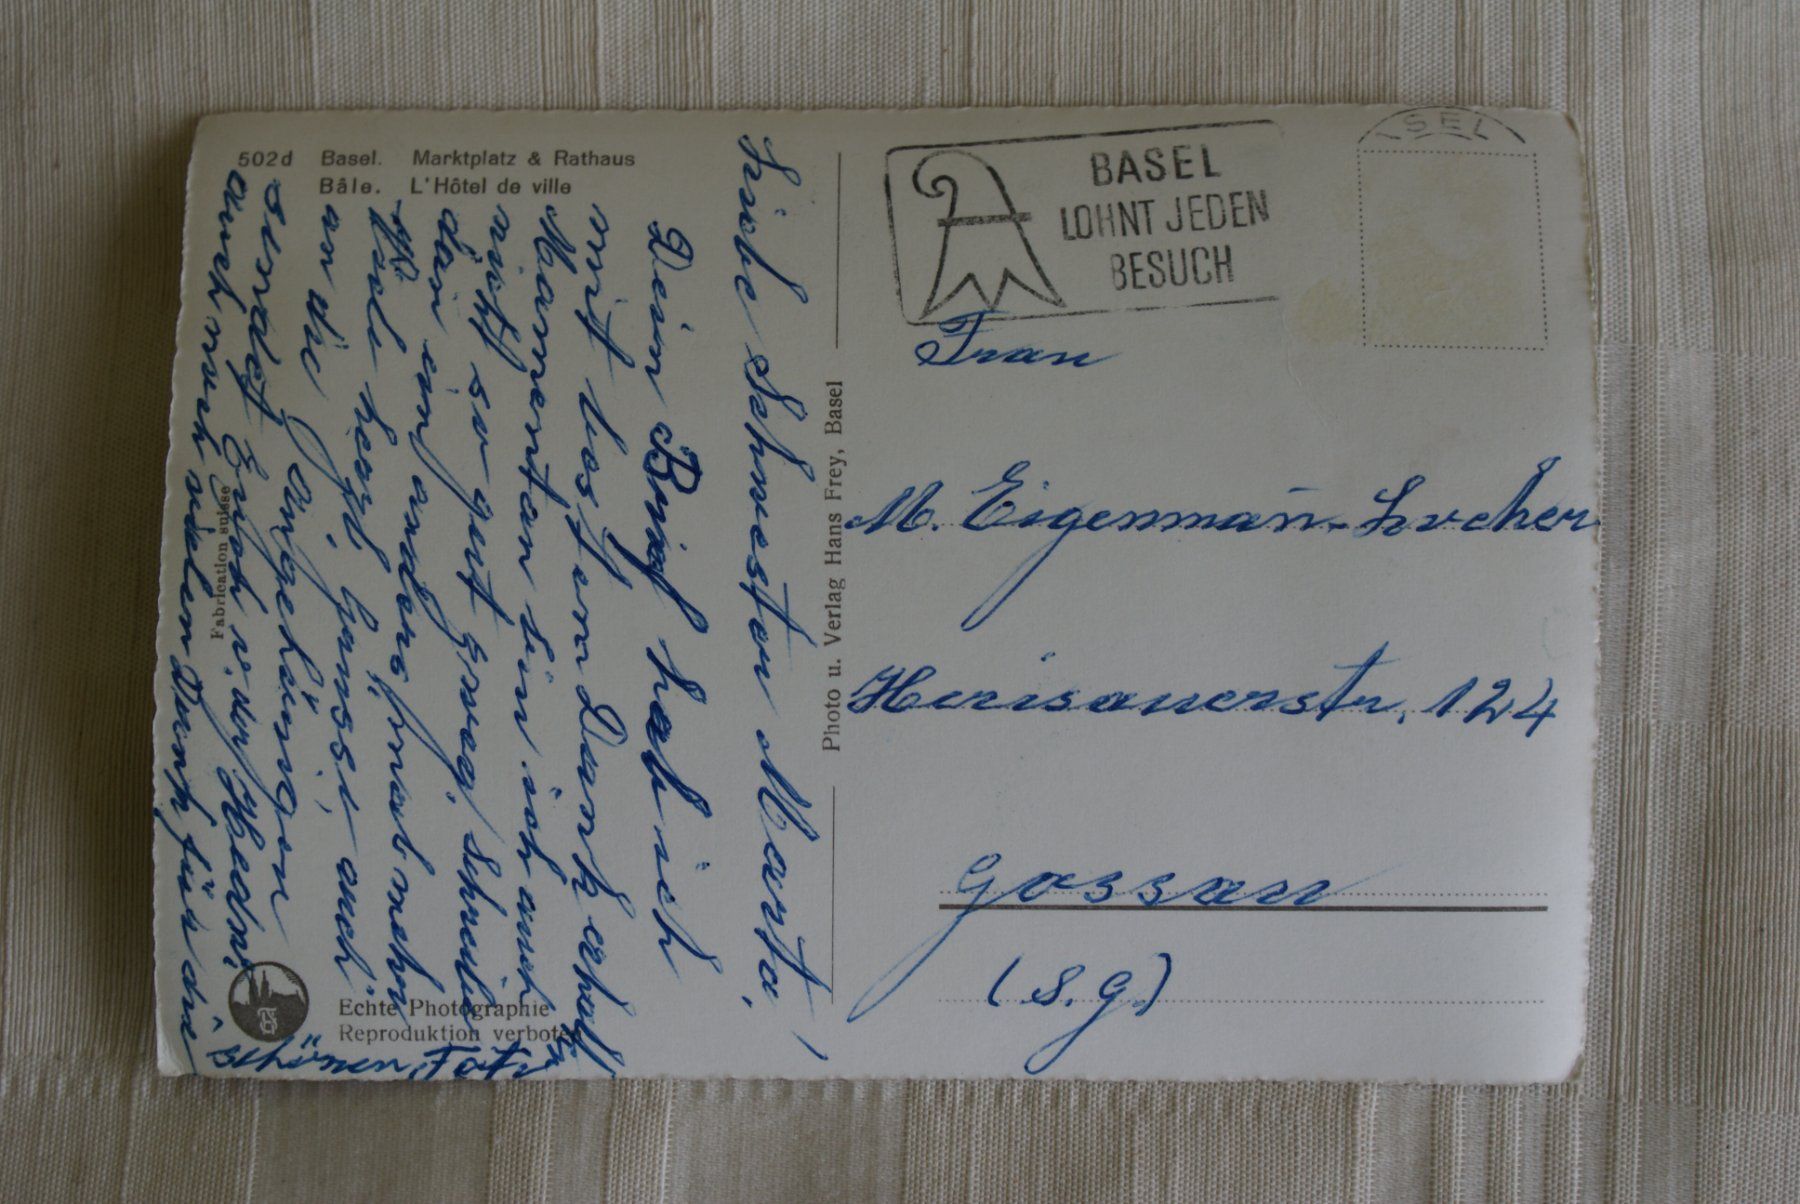 502d Basel. Marktplatz & Rathaus
Bâle. L'Hôtel de ville
Liebe Schwester Marta!
Dein Brief hab ich
mit bestem Dank erhalt
Momentan bin ich auch
nicht so gut zwag. Schreibe
dan ein anders mal mehr
Viele herzl. Grüsse auch
an die Angehörigen
sendet Euch Hedwi
auch noch vielen Dank für die
schönen Foto
Fabrication suisse
Echte Photographie
Reproduktion verboten
Photo u. Verlag Hans Frey, Basel
BASEL
LOHNT JEDEN
BESUCH
ASEL
Frau
M. Eigenmann-Locher
Herisauerstr. 124
Gossau
(S.G.)